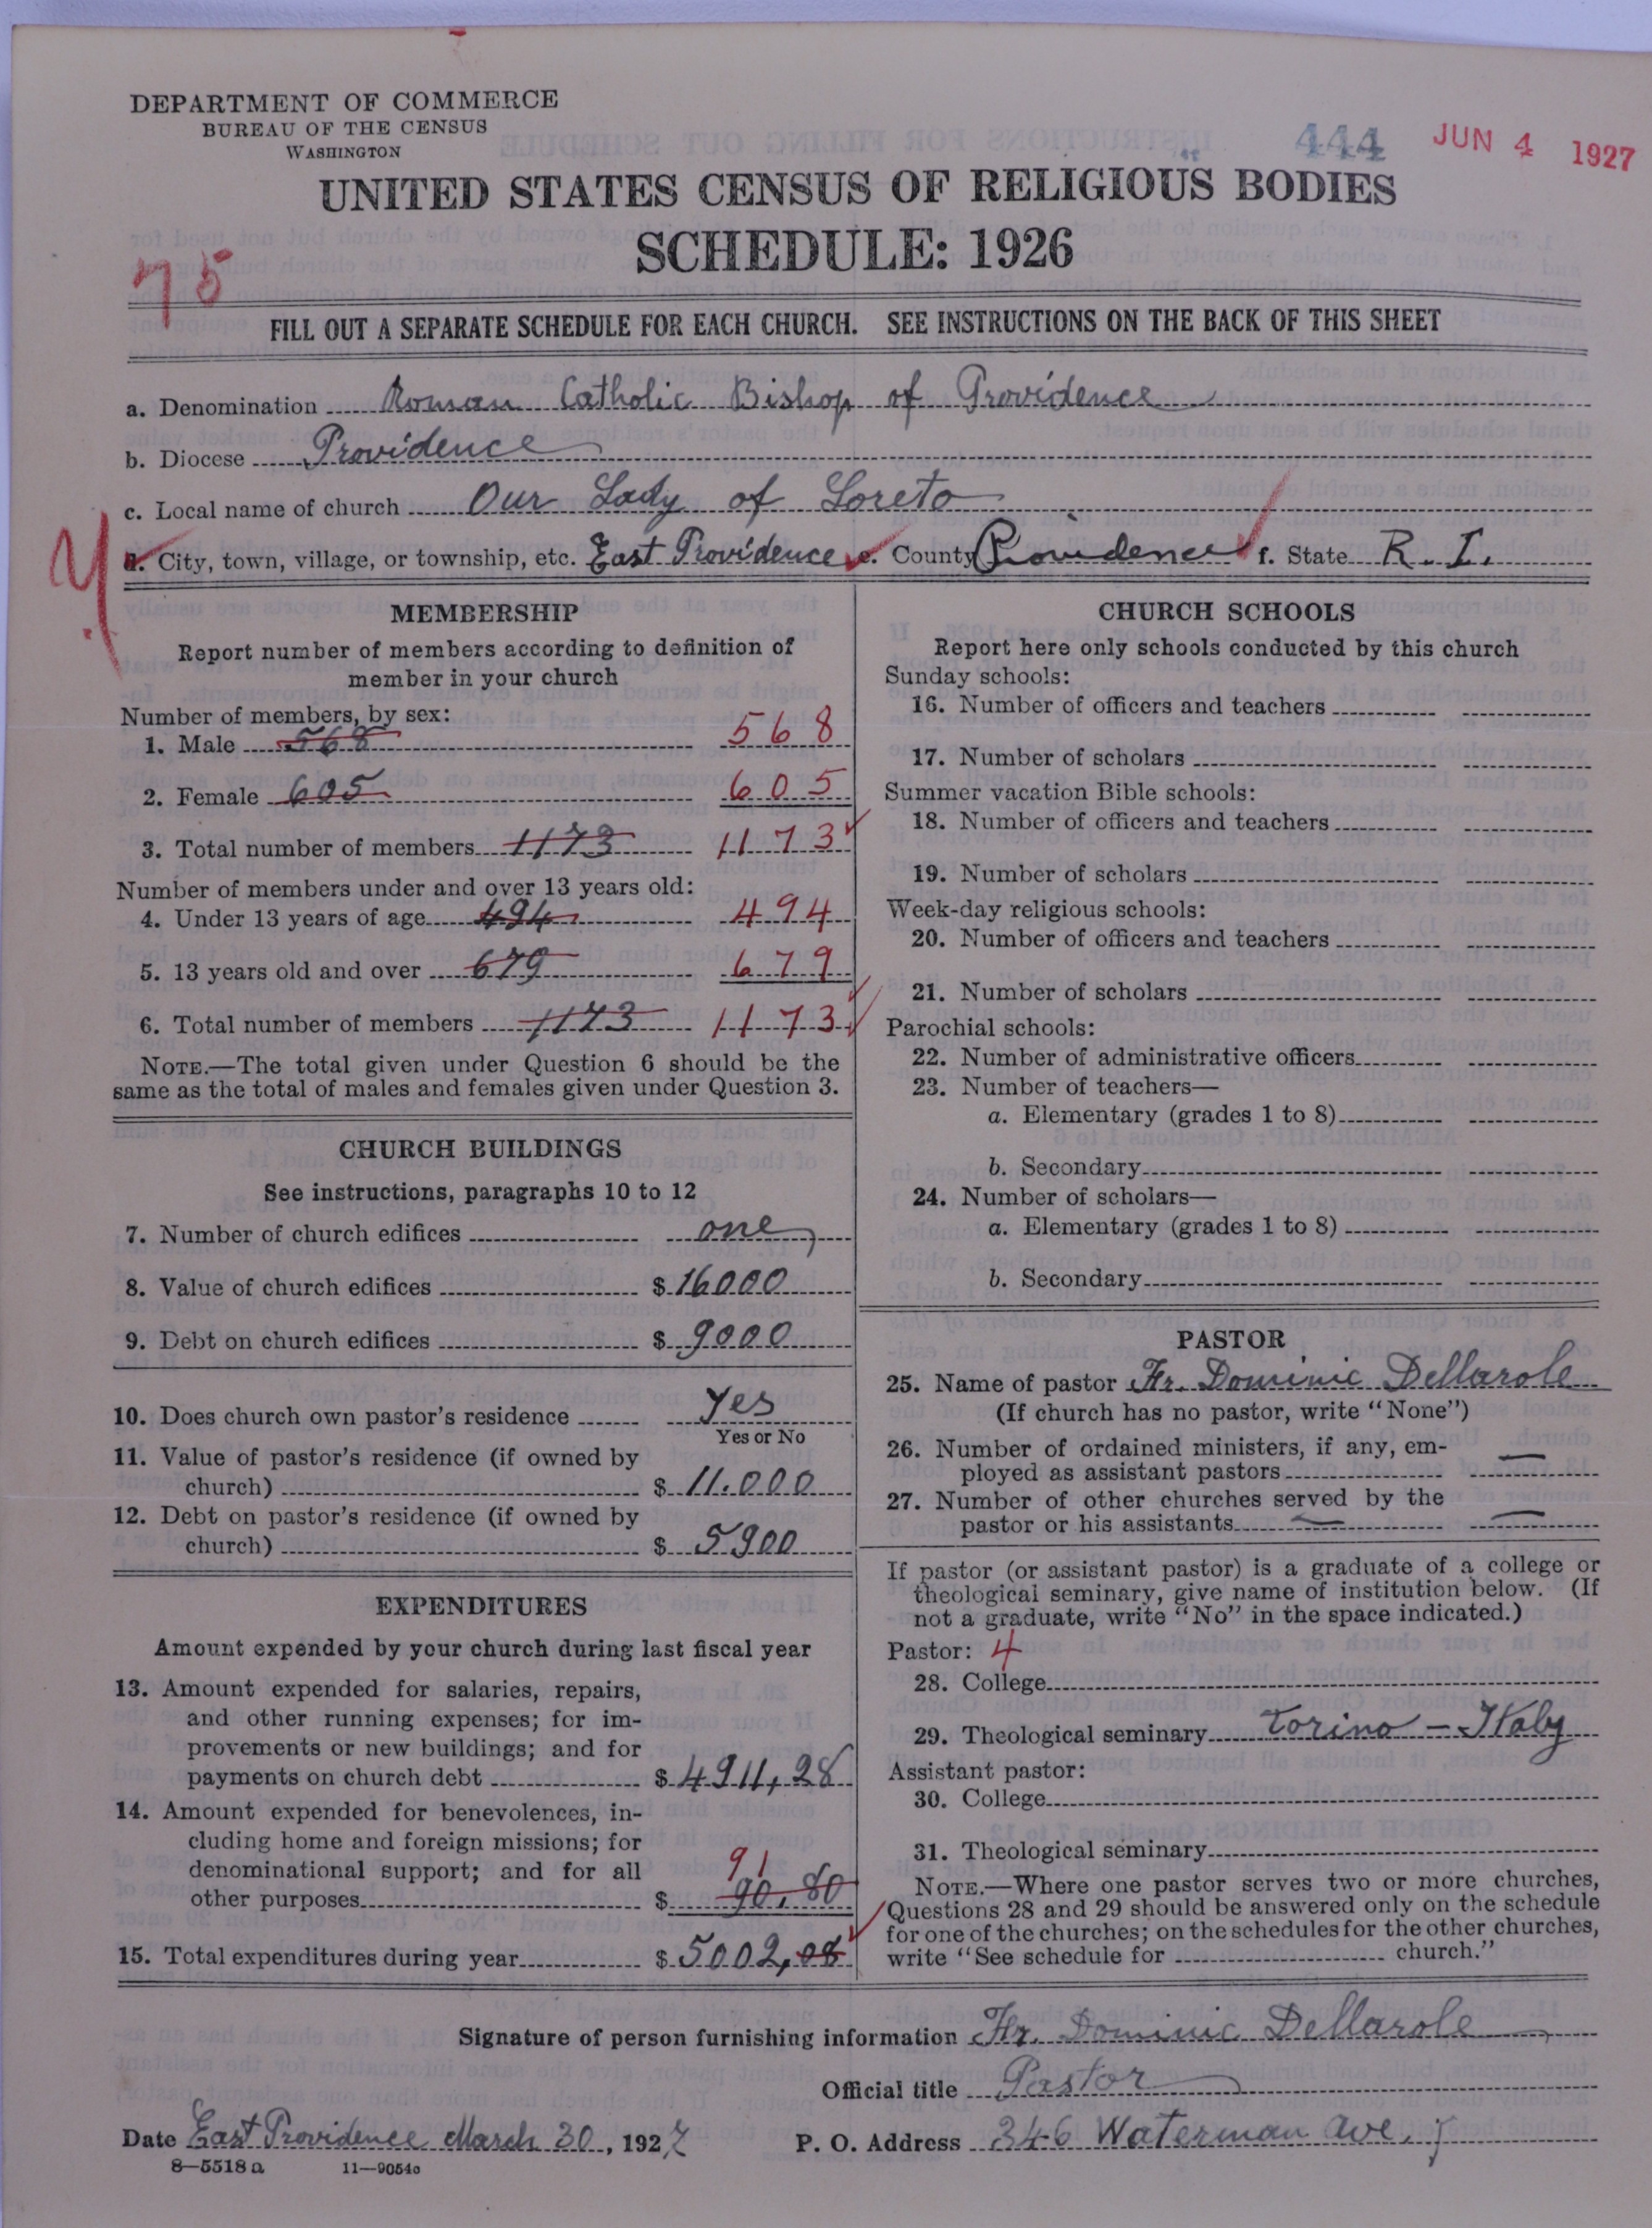 DEPARTMENT OF COMMERCE
BUREAU OF THE CENSUS
WASHINGTON
444 JUN 4 1927
UNITED STATES CENSUS OF RELIGIOUS BODIES
SCHEDULE: 1926
75
FILL OUT A SEPARATE SCHEDULE FOR EACH CHURCH. SEE INSTRUCTIONS ON THE BACK OF THIS SHEET
a. Denomination Roman Catholic Bishop of Providence
b. Diocese Providence
c. Local name of church Our Lady of Loreto
d. City, town, village, or township, etc. East Providence e. County Providence f. State R. I.
MEMBERSHIP
Report number of members according to definition of
member in your church
Number of members, by sex:
1. Male 568 568
2. Female 605 605
3. Total number of members 1173 1173
Number of members under and over 13 years old:
4. Under 13 years of age 494 494
5. 13 years old and over 679 679
6. Total number of members 1173 1173
NOTE.—The total given under Question 6 should be the
same as the total of males and females given under Question 3.
CHURCH BUILDINGS
See instructions, paragraphs 10 to 12
7. Number of church edifices one
8. Value of church edifices $ 16000
9. Debt on church edifices $ 9000
10. Does church own pastor's residence Yes
Yes or No
11. Value of pastor's residence (if owned by
church) $ 11.000
12. Debt on pastor's residence (if owned by
church) $ 5900
EXPENDITURES
Amount expended by your church during last fiscal year
13. Amount expended for salaries, repairs,
and other running expenses; for im-
provements or new buildings; and for
payments on church debt $ 4911,28
14. Amount expended for benevolences, in-
cluding home and foreign missions; for
denominational support; and for all
91
other purposes $ 90.80
15. Total expenditures during year $ 5002,08
CHURCH SCHOOLS
Report here only schools conducted by this church
Sunday schools:
16. Number of officers and teachers
17. Number of scholars
Summer vacation Bible schools:
18. Number of officers and teachers
19. Number of scholars
Week-day religious schools:
20. Number of officers and teachers
21. Number of scholars
Parochial schools:
22. Number of administrative officers
23. Number of teachers—
a. Elementary (grades 1 to 8)
b. Secondary
24. Number of scholars—
a. Elementary (grades 1 to 8)
b. Secondary
PASTOR
25. Name of pastor Fr. Dominic Dellarole
(If church has no pastor, write "None")
26. Number of ordained ministers, if any, em-
ployed as assistant pastors —
27. Number of other churches served by the
pastor or his assistants — —
If pastor (or assistant pastor) is a graduate of a college or
theological seminary, give name of institution below. (If
not a graduate, write "No" in the space indicated.)
Pastor: 4
28. College
29. Theological seminary Torino – Italy
Assistant pastor:
30. College
31. Theological seminary
NOTE.—Where one pastor serves two or more churches,
Questions 28 and 29 should be answered only on the schedule
for one of the churches; on the schedules for the other churches,
write "See schedule for church."
Signature of person furnishing information Fr. Dominic Dellarole
Official title Pastor
Date East Providence March 30, 1927 P. O. Address 346 Waterman Ave.
8—5518 a 11—9054c